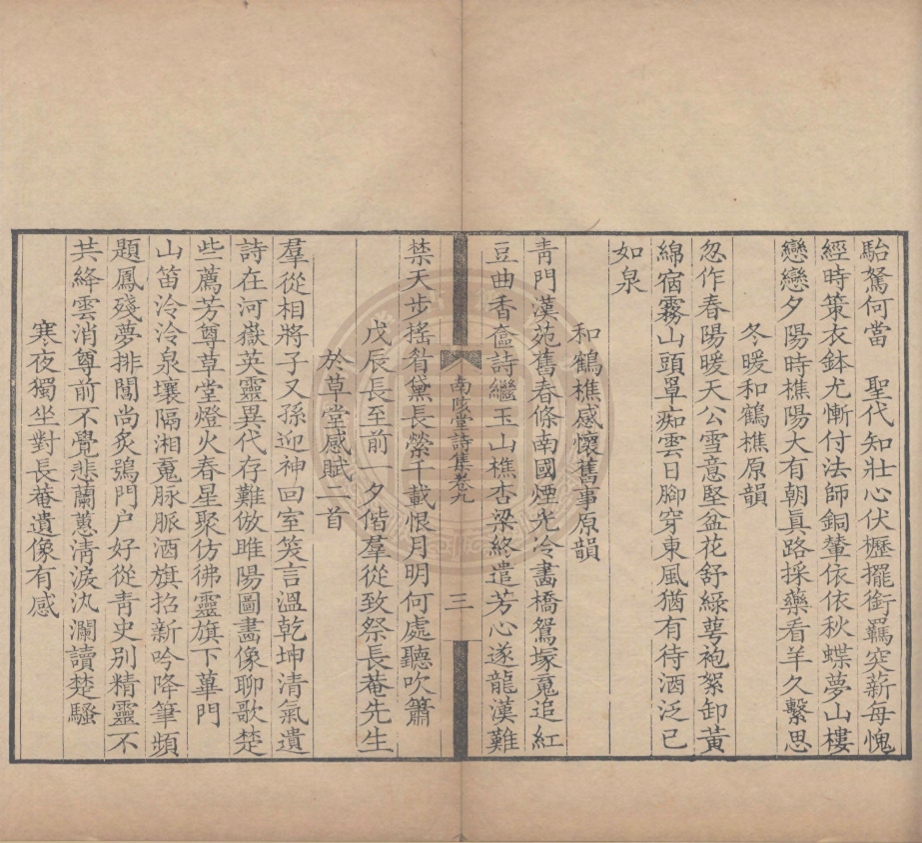 駘駑何當　聖代知壯心伏櫪擺銜羈突薪每愧
經時策衣鉢尤慚付法師銅輦依依秋蝶夢山樓
戀戀夕陽時樵陽大有朝眞路採藥看羊久繫思
冬暖和鶴樵原韻
忽作春陽暖天公雪意堅盆花舒綠萼袍絮卸黃
綿宿霧山頭罩痴雲日腳穿東風猶有待酒泛已
如泉
和鶴樵感懷舊事原韻
靑門漢苑舊春條南國煙光冷畵橋鴛塚䰟追紅
豆曲香奩詩繼玉山樵杏梁終遣芳心遂龍漢難
南陔堂詩集卷九
三
禁天步搖眉黛長縈千載恨月明何處聽吹簫
戊辰長至前一夕偕羣從致祭長菴先生
於草堂感賦二首
羣從相將子又孫迎神回室笑言溫乾坤清氣遺
詩在河嶽英靈異代存難倣睢陽圖畵像聊歌楚
些薦芳尊草堂燈火春星聚仿彿靈旗下蓽門
山笛泠泠泉壤隔湘䰟脉脈酒旗招新吟降筆頻
題鳳殘夢排闥尚炙鴞門户好從靑史別精靈不
共絳雲消尊前不覺悲蘭蕙淸淚汍瀾讀楚騷
寒夜獨坐對長菴遺像有感